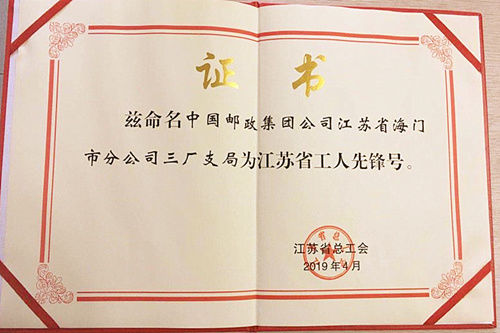 证书
兹命名中国邮政集团公司江苏省海门
市分公司三厂支局为江苏省工人先锋号。
江苏省总工会
2019年4月